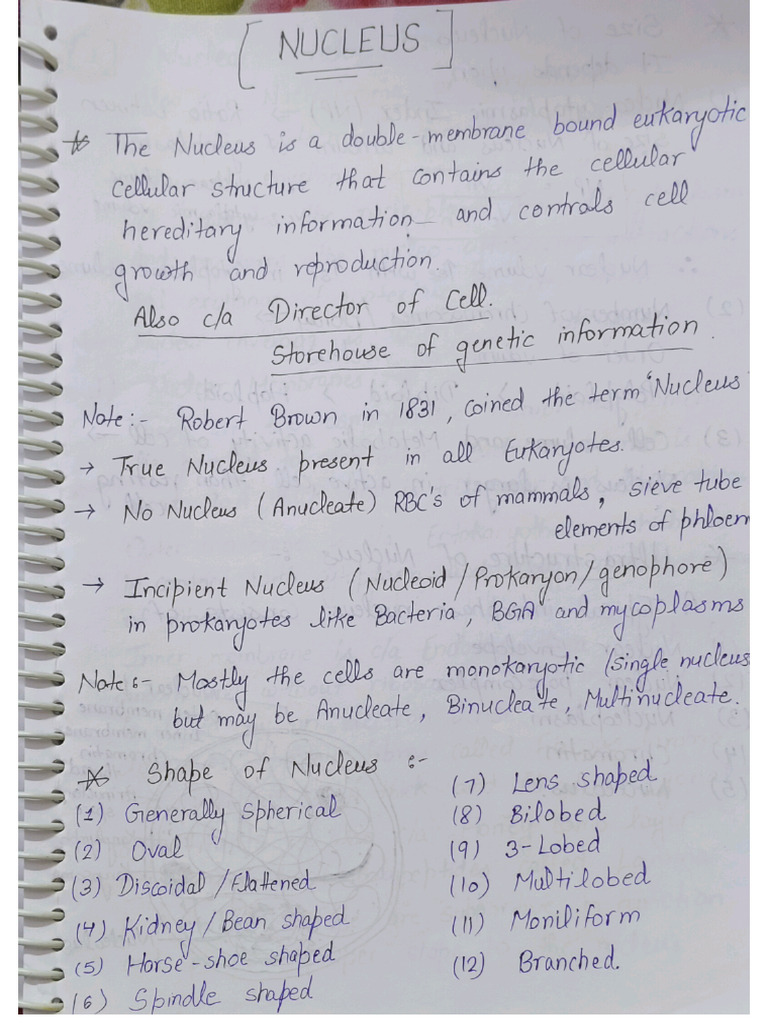 [NUCLEUS]
* The Nucleus is a double-membrane bound eukaryotic
cellular structure that contains the cellular
hereditary information and contrals cell
growth and reproduction.
Also c/a Director of Cell.
Storehouse of genetic information.
Note:- Robert Brown in 1831, coined the term "Nucleus
→ True Nucleus present in all Eukaryotes.
→ No Nucleus (Anucleate) RBC's of mammals, sieve tube
elements of phloem
→ Incipient Nucleus (Nucleoid/Prokaryon/genophore)
in prokaryotes like Bacteria, BGA and mycoplasms
Note:- Mostly the cells are monokaryotic (single nucleus
but may be Anucleate, Binucleate, Multinucleate.
* Shape of Nucleus :-
(1) Generally Spherical
(2) Oval
(3) Discoidal/Flattened
(4) Kidney/Bean shaped
(5) Horse-shoe shaped
(6) Spindle shaped
(7) Lens shaped
(8) Bilobed
(9) 3-Lobed
(10) Multilobed
(11) Moniliform
(12) Branched.